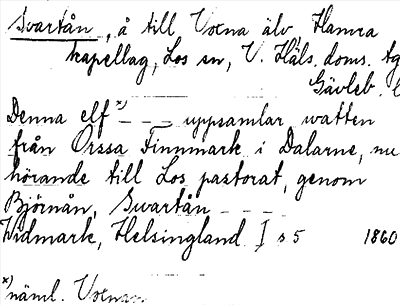 Svartån, å till Voxna älv, Hamra
kapellag, Los sn, V. Häls. doms. tg
Gävleb. l
Denna elf *) – – – uppsamlar watten
från Orssa Finnmark i Dalarne, nu
hörande till Los pastorat, genom
Björnån, Swartån – – – –
Widmark, Helsingland I s 5 1860
*) näml. Voxnan